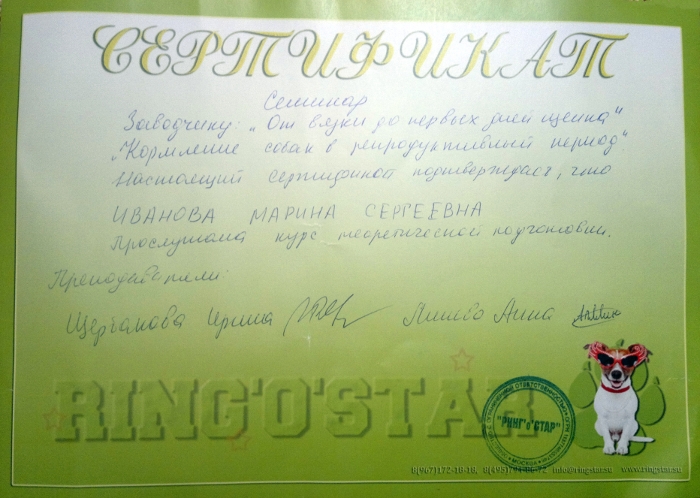 СЕРТИФИКАТ
Семинар
Заводчику: „От вязки до первых дней щенка"
„Кормление собак в репродуктивный период".
Настоящий сертификат подтверждает, что
ИВАНОВА МАРИНА СЕРГЕЕВНА
Прослушала курс теоретической подготовки.
Преподаватели:
Ирина Анна
RING'O'STAR
"РИНГ'о'СТАР"
МОСКВА
8(967)172-18-18, info@ringstar.ru www.ringstar.ru